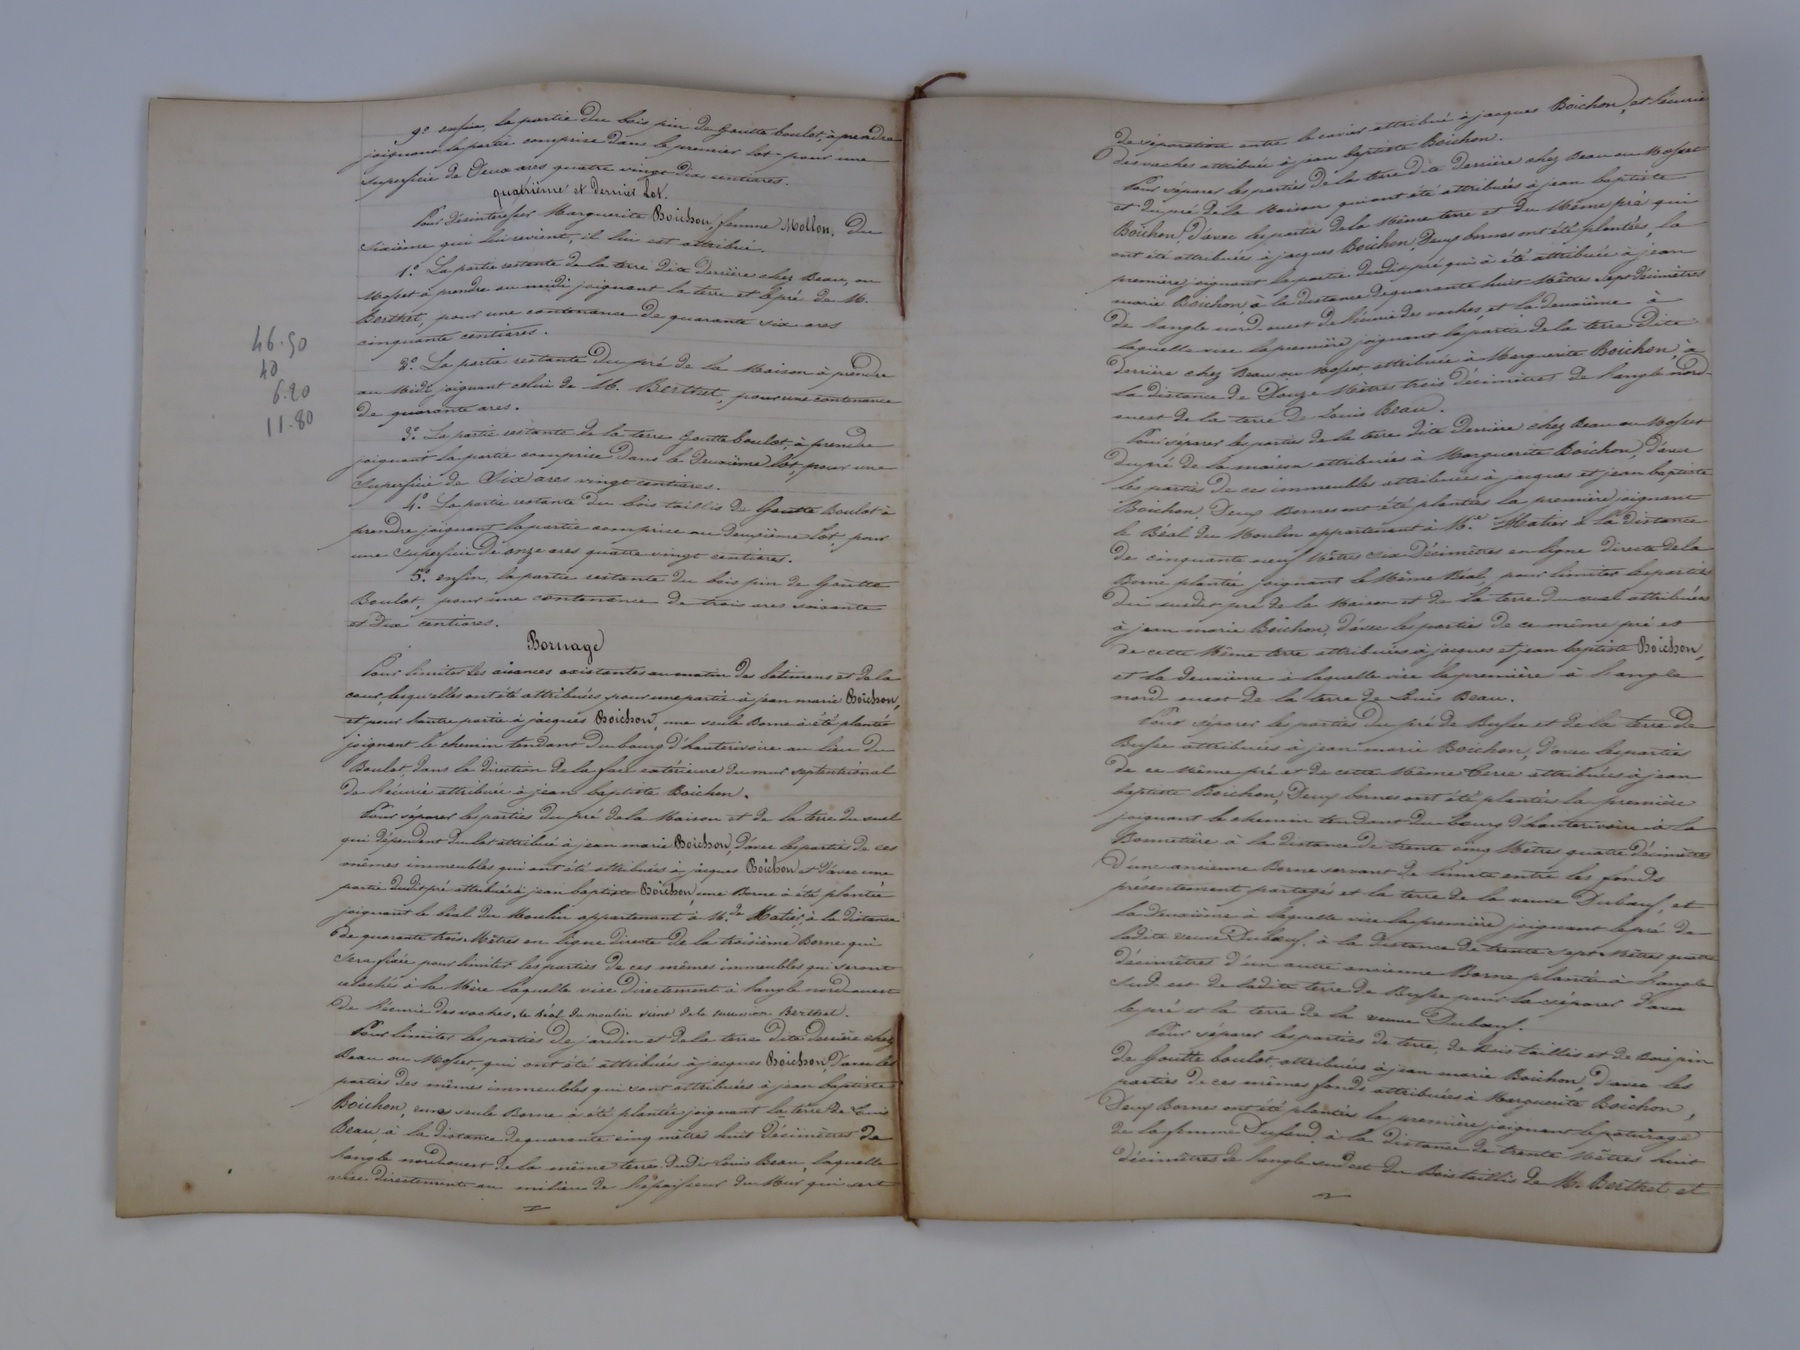 9.° enfin, la partie du bois pin de Goutte boulat, à prendre
joignant la partie comprise dans le premier lot, pour une
superficie de Deux ares quatre vingt dix centiares.
quatrième et Dernier Lot.
Pour désintéresser Marguerite Boichon, femme Mollon, du
sixième qui lui revient, il lui est attribué.
1.° La partie restante de la terre dite derrière chez Beau, ou
à prendre au midi joignant la terre et le pré de M.
Berthet, pour une contenance de quarante six ares
cinquante centiares.
2.° La partie restante du pré de la Maison à prendre
au Midi, joignant celui de M. Berthet, pour une contenance
de quarante ares.
3.° La partie restante de la terre Goutte boulat, à prendre
joignant la partie comprise dans le deuxième lot, pour une
superficie de Six ares vingt centiares.
4.° La partie restante du bois taillis de Goutte Boulat à
prendre joignant la partie comprise au deuxième Lot, pour
une superficie de onze ares quatre vingt centiares.
5.° enfin, la partie restante du bois pin de Goutte
Boulat, pour une contenance de trois ares soixante
et dix centiares.
46.50
40
6.20
11.80
Bornage
Pour limiter les aisances existantes au matin des bâtimens et de la
cour, lesquelles ont été attribuées, pour une partie à jean marie Boichon,
et pour l'autre partie à jacques Boichon, une seule Borne à été plantée
joignant le chemin tendant du bourg d'hauterivoire au lieu du
Boulat, dans la direction de la face extérieure du mur septentrional
de l'écurie attribuée à jean baptiste Boichon.
Pour séparer les parties du pré de la Maison et de la terre du
qui dépendent du lot attribué à jean marie Boichon, d'avec les parties de ces
mêmes immeubles qui ont été attribuées à jacques Boichon et d'avec une
partie dudit pré attribuée à jean baptiste Boichon, une Borne à été plantée
joignant le béal du Moulin appartenant à M.de Matier, à la distance
de quarante trois Mètres en ligne directe de la troisième Borne qui
sera fixée pour limiter les parties de ces mêmes immeubles qui seront
à la Mère laquelle vise directement à l'angle nord ouest
de l'écurie des vaches, le béal du moulin vient de la succession Berthet.
Pour limiter les parties de jardin et de la terre dite derrière chez
Beau ou qui ont été attribuées à jacques Boichon, d'avec les
parties des mêmes immeubles qui sont attribuées à jean baptiste
Boichon, une seule Borne à été plantée joignant la terre de Louis
Beau, à la distance de quarante cinq mètres huit décimètres de
l'angle nord ouest de la même terre dudit Louis Beau, laquelle
vise directement au milieu de l'épaisseur du Mur qui sert
de séparation entre le cuvier attribué à jacques Boichon, et l'écurie
des vaches attribuée à jean baptiste Boichon.
Pour séparer les parties de la terre dite derrière chez Beau ou
et du pré de la Maison qui ont été attribuées à jean baptiste
Boichon, d'avec les parties de la Même terre et du Même pré qui
ont été attribuées à jacques Boichon, Deux bornes ont été plantées, la
première joignant la partie dudit pré qui à été attribuée à jean
marie Boichon, à la distance de quarante huit Mètres sept décimètres
de l'angle nord ouest de l'écurie des vaches, et la deuxième à
laquelle vise la première joignant la partie de la terre dite
derrière chez Beau ou attribuée à Marguerite Boichon, à
la distance de Douze Mètres trois décimètres de l'angle nord-
ouest de la terre de Louis Beau.
Pour séparer les parties de la terre dite derrière chez Beau ou
du pré de la maison attribuées à Marguerite Boichon, d'avec
les parties de ces immeubles attribuées à jacques et jean baptiste
Boichon, Deux Bornes ont été plantées la première joignant
le Béal du Moulin appartenant à M.e Matier à la distance
de cinquante neuf Mètres six Décimètres en ligne directe de la
Borne plantée joignant le Même Béal, pour limiter les parties
du susdit pré de la Maison et de la terre du attribuées
à jean marie Boichon, d'avec les parties de ce même pré et
de cette Même terre attribuées à jacques et jean baptiste Boichon,
et la deuxième à laquelle vise la première à l'angle
nord ouest de la terre de Louis Beau.
Pour séparer les parties du pré de Busse et de la terre de
Busse attribuées à jean marie Boichon, d'avec les parties
de ce Même pré et de cette Même terre attribuées à jean
baptiste Boichon, Deux bornes ont été plantées la première
joignant le chemin tendant du bourg d'hauterivoire à la
Bonnetière à la distance de trente cinq Mètres quatre décimètres
d'une ancienne Borne servant de limite entre les fonds
présentement partagés et la terre de la veuve Dubœuf, et
la deuxième à laquelle vise la première joignant le pré de
ladite veuve Dubœuf, à la distance de trente sept Mètres quatre
décimètres d'un autre ancienne Borne plantée à l'angle
sud est de ladite terre de Busse pour la séparer d'avec
le pré et la terre de la veuve Dubœuf.
Pour séparer les parties de terre, de Bois taillis et de Bois pin
de Goutte boulat attribuées à jean marie Boichon, d'avec les
parties de ces mêmes fonds attribuées à Marguerite Boichon,
Deux Bornes ont été plantées la première joignant le paturage
de la femme à la distance de trente Mètres huit
décimètres de l'angle sud est du Bois taillis de M. Berthet et